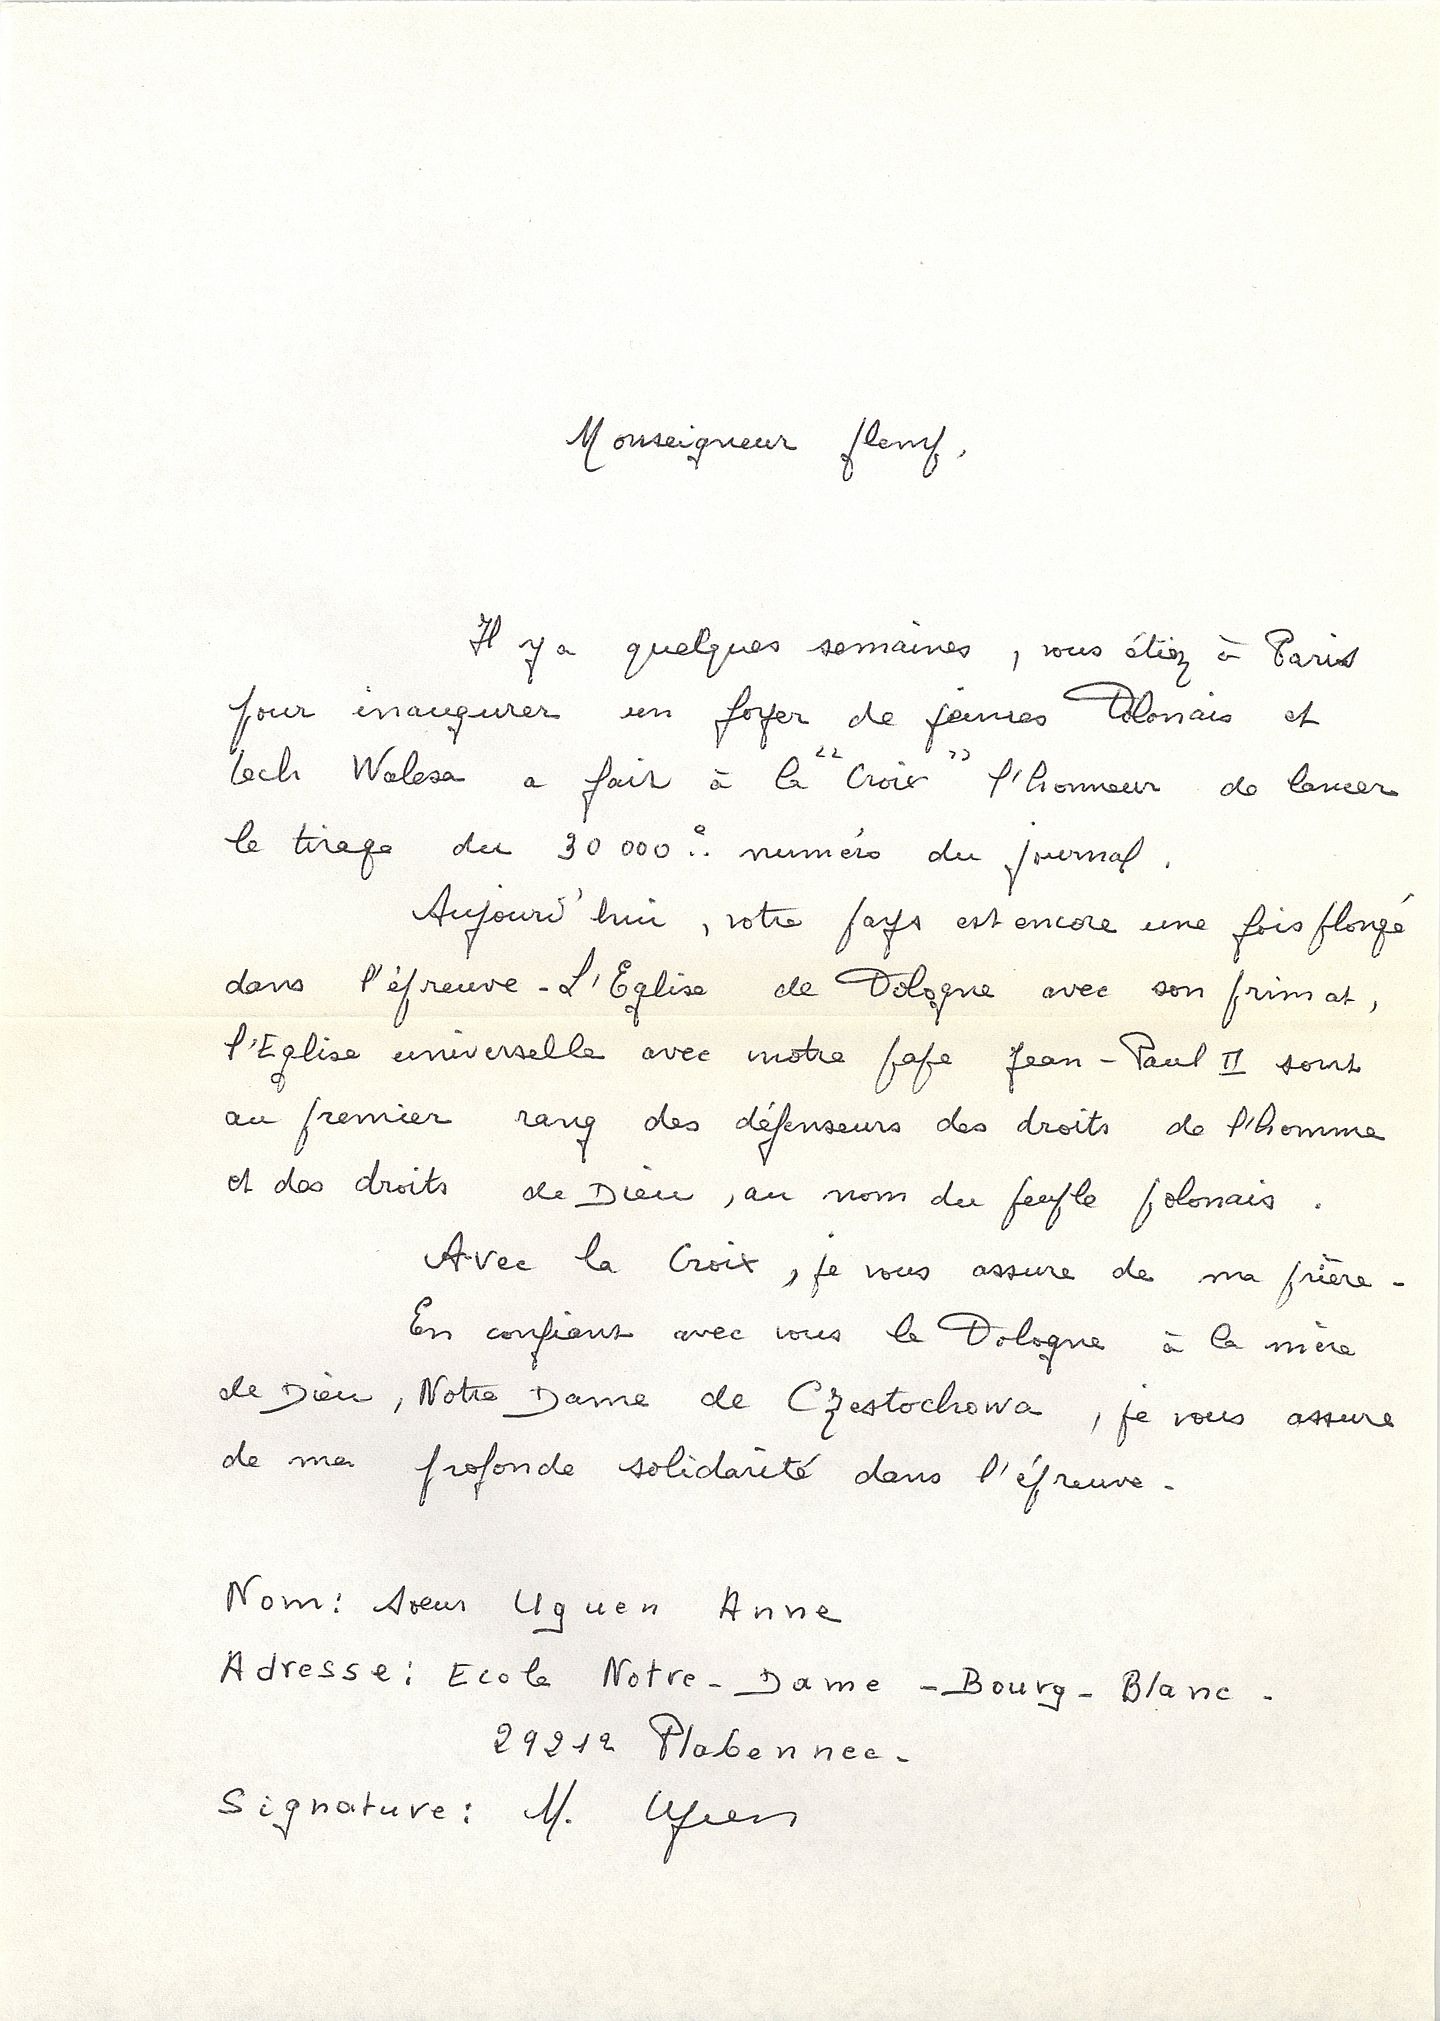 Monseigneur Glemp,
Il y a quelques semaines, vous étiez à Paris
pour inaugurer un foyer de jeunes Polonais et
Lech Walesa a fait à la "Croix" l'honneur de lancer
le tirage du 30 000e numéro du journal.
Aujourd'hui, votre pays est encore une fois plongé
dans l'épreuve - L'Eglise de Pologne avec son primat,
l'Eglise universelle avec notre pape Jean-Paul II sont
au premier rang des défenseurs des droits de l'homme
et des droits de Dieu, au nom du peuple polonais.
Avec la Croix, je vous assure de ma prière -
En confiant avec vous la Pologne à la mère
de Dieu, Notre Dame de Częstochowa, je vous assure
de ma profonde solidarité dans l'épreuve -
Nom: Soeur Uguen Anne
Adresse: Ecole Notre-Dame - Bourg-Blanc -
29212 Plabennec -
Signature: M. Uguen